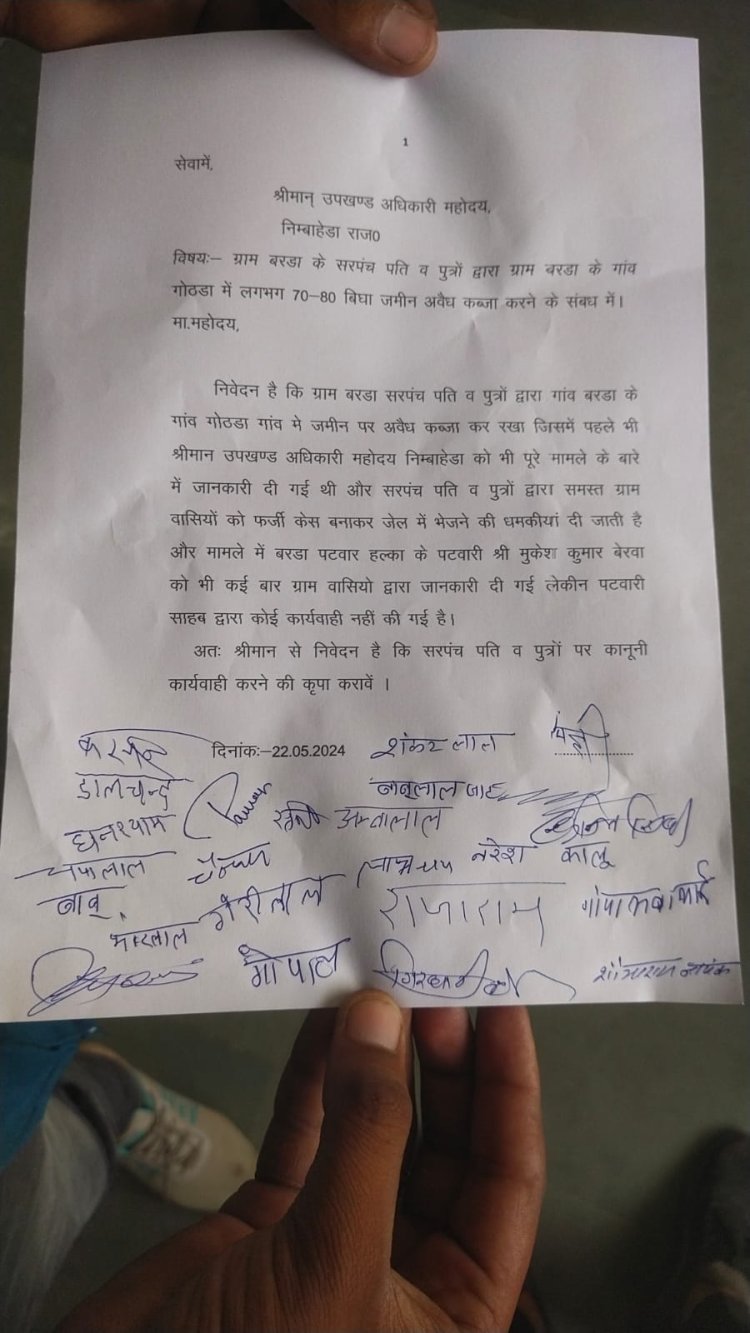 1
सेवामें,
श्रीमान् उपखण्ड अधिकारी महोदय,
निम्बाहेडा राज0
विषयः– ग्राम बरडा के सरपंच पति व पुत्रों द्वारा ग्राम बरडा के गांव
गोठडा में लगभग 70–80 बिघा जमीन अवैध कब्जा करने के संबध में।
मा.महोदय,
निवेदन है कि ग्राम बरडा सरपंच पति व पुत्रों द्वारा गांव बरडा के
गांव गोठडा गांव मे जमीन पर अवैध कब्जा कर रखा जिसमें पहले भी
श्रीमान उपखण्ड अधिकारी महोदय निम्बाहेडा को भी पूरे मामले के बारे
में जानकारी दी गई थी और सरपंच पति व पुत्रों द्वारा समस्त ग्राम
वासियों को फर्जी केस बनाकर जेल में भेजने की धमकीयां दी जाती है
और मामले में बरडा पटवार हल्का के पटवारी श्री मुकेश कुमार बेरवा
को भी कई बार ग्राम वासियो द्वारा जानकारी दी गई लेकीन पटवारी
साहब द्वारा कोई कार्यवाही नहीं की गई है।
अतः श्रीमान से निवेदन है कि सरपंच पति व पुत्रों पर कानूनी
कार्यवाही करने की कृपा करावें ।
दिनांकः–22.05.2024 शंकर लाल
डालचन्द बाबूलाल जाट
घनश्याम
नरेश कालू
राजाराम
गोपाल